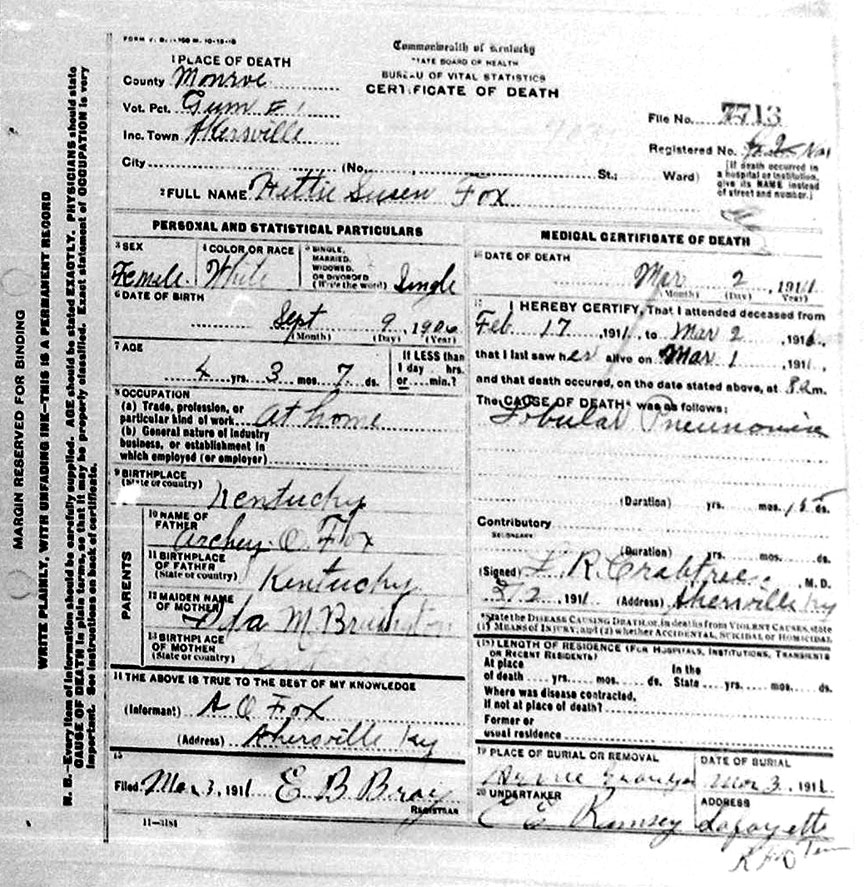 Commonwealth of Kentucky
STATE BOARD OF HEALTH
BUREAU OF VITAL STATISTICS
CERTIFICATE OF DEATH
1 PLACE OF DEATH
County Monroe
Vot. Pct. Gum # 1
Inc. Town Akersville
City (No. St.; Ward)
File No. 7713
Registered No.
[If death occurred in
a hospital or institution,
give its NAME instead
of street and number.]
2 FULL NAME Hettie Susen Fox
PERSONAL AND STATISTICAL PARTICULARS
3 SEX Female
4 COLOR OR RACE White
5 SINGLE,
MARRIED,
WIDOWED,
OR DIVORCED
(Write the word) Single
6 DATE OF BIRTH
Sept 9, 1906
(Month) (Day) (Year)
7 AGE
4 yrs. 3 mos. 7 ds.
If LESS than
1 day hrs.
or min.?
8 OCCUPATION
(a) Trade, profession, or
particular kind of work At home
(b) General nature of industry
business, or establishment in
which employed (or employer)
9 BIRTHPLACE
(State or country) Kentucky
PARENTS
10 NAME OF
FATHER Archey O. Fox
11 BIRTHPLACE
OF FATHER
(State or country) Kentucky
12 MAIDEN NAME
OF MOTHER Ida M
13 BIRTHPLACE
OF MOTHER
(State or country)
14 THE ABOVE IS TRUE TO THE BEST OF MY KNOWLEDGE
(Informant) A O Fox
(Address) Akersville Ky
15
Filed Mar 3, 1911 E B Bray
REGISTRAR
11-3184
MEDICAL CERTIFICATE OF DEATH
16 DATE OF DEATH
Mar 2, 1911
(Month) (Day) (Year)
17 I HEREBY CERTIFY, That I attended deceased from
Feb 17, 1911, to Mar 2, 1911,
that I last saw her alive on Mar 1, 1911,
and that death occured, on the date stated above, at 8 a m.
The CAUSE OF DEATH* was as follows:
Lobular Pneumonia
(Duration) yrs. mos. 15 ds.
Contributory
SECONDARY
(Duration) yrs. mos. ds.
(Signed) R. Crabtree, M. D.
3/2 1911 (Address) Akersville Ky
*State the DISEASE CAUSING DEATH, or, in deaths from VIOLENT CAUSES, state
(1) MEANS OF INJURY; and (2) whether ACCIDENTAL, SUICIDAL or HOMICIDAL.
(18) LENGTH OF RESIDENCE (FOR HOSPITALS, INSTITUTIONS, TRANSIENTS
OR RECENT RESIDENTS)
At place In the
of death yrs. mos. ds. State yrs. mos. ds.
Where was disease contracted,
If not at place of death?
Former or
usual residence
19 PLACE OF BURIAL OR REMOVAL
DATE OF BURIAL
Mar 3, 1911
20 UNDERTAKER
C E Ramsey
ADDRESS
Lafayette
Tenn
MARGIN RESERVED FOR BINDING
WRITE PLAINLY, WITH UNFADING INK—THIS IS A PERMANENT RECORD
N. B.—Every item of information should be carefully supplied. AGE should be stated EXACTLY. PHYSICIANS should state
CAUSE OF DEATH in plain terms, so that it may be properly classified. Exact statement of OCCUPATION is very
important. See instructions on back of certificate.